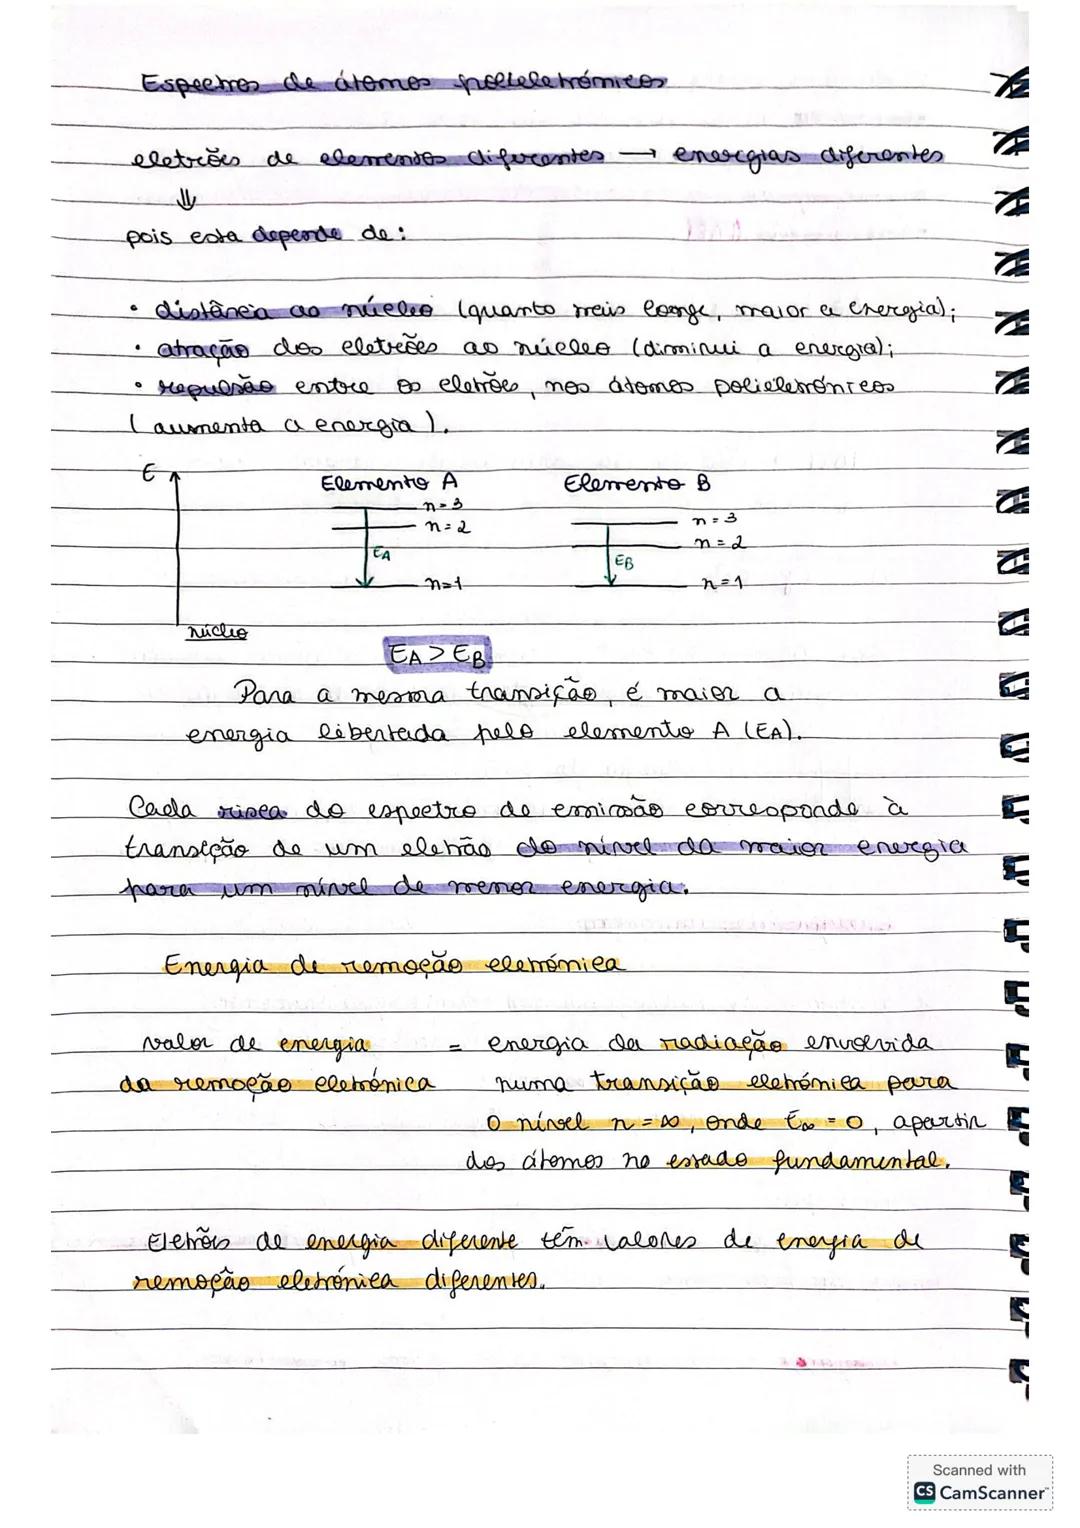 Espectros de átomos polieletrónicos
eletrões de elementos diferentes → energias diferentes
⇓
pois esta depende de:
• distância ao núcleo (quanto mais longe, maior a energia);
• atração dos eletrões ao núcleo (diminui a energia);
• repulsão entre os eletrões, nos átomos polieletrónicos
(aumenta a energia).
E
Elemento A
Elemento B
n=3
n=2
EA
n=1
n=3
n=2
EB
n=1
núcleo
EA > EB
Para a mesma transição, é maior a
energia libertada pelo elemento A (EA).
Cada risca do espectro de emissão corresponde à
transição de um eletrão do nível da maior energia
para um nível de menor energia.
Energia de remoção eletrónica
valor de energia = energia da radiação envolvida
da remoção eletrónica numa transição eletrónica para
o nível n=∞, onde E∞ = 0, apartir
dos átomos no estado fundamental.
Eletrões de energia diferente têm valores de energia de
remoção eletrónica diferentes.
Scanned with
CS CamScanner